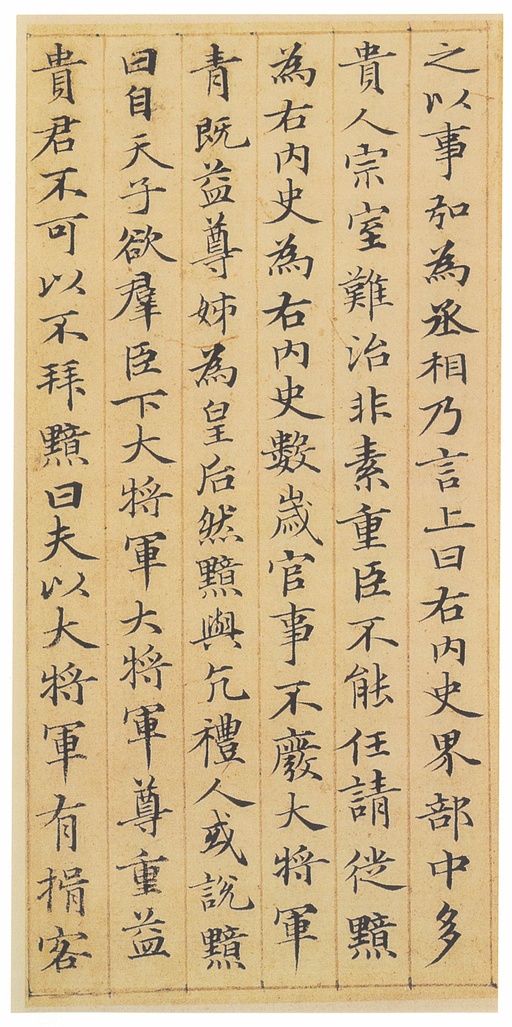 之以事弘為丞相乃言上曰右内史界部中多
貴人宗室難治非素重臣不能任請徙黯
為右内史為右内史數歲官事不廢大将軍
青既益尊姊為皇后然黯與亢禮人或説黯
曰自天子欲羣臣下大将軍大将軍尊重益
貴君不可以不拜黯曰夫以大将軍有揖客